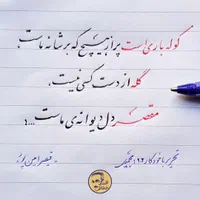 کوله باری است پر از هیچ که بر شانه ماست،
گله از دست کسی نیست،
مقصر دل دیوانه‌ی ماست...!
قیصر امین پور
تحریر با خودکار